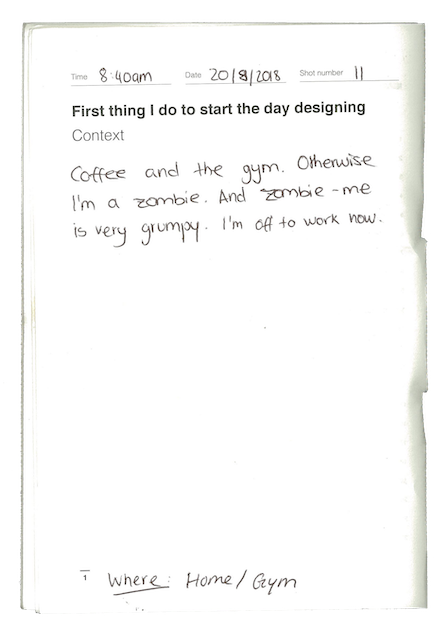 Time 8:40am Date 20/8/2018 Shot number 11
First thing I do to start the day designing
Context
Coffee and the gym. Otherwise
I'm a zombie. And zombie-me
is very grumpy. I'm off to work now.
1 Where: Home/Gym